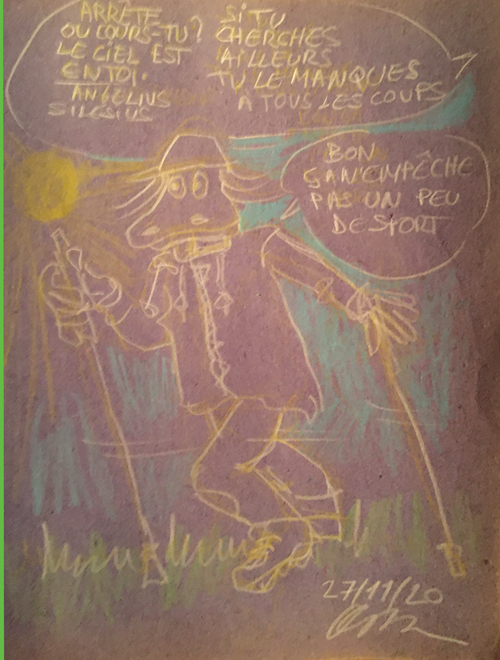 ARRÊTE
OU COURS-TU?
LE CIEL EST
EN TOI.
ANGELIUS
SILESIUS
SI TU
CHERCHES
AILLEURS
TU LE MANQUES
A TOUS LES COUPS
BON
ÇA N'EMPÊCHE
PAS UN PEU
DE SPORT
27/11/20